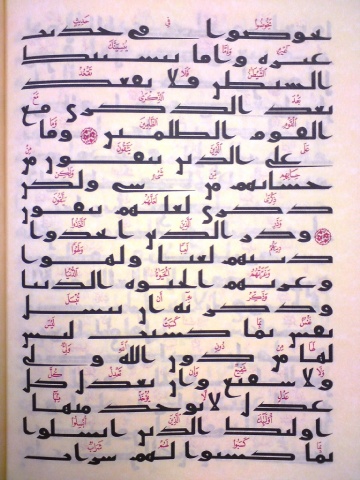 يخوضوا في حديث
غيره واما ينسينك
الشيطن فلا تقعد
بعد الذكرى مع
القوم الظلمين وما
على الذين يتقون من
حسابهم من شى ولكن
ذكرى لعلهم يتقون
وذر الذين اتخذوا
دينهم لعبا ولهوا
وغرتهم الحيوة الدنيا
وذكر به ان تبسل
نفس بما كسبت ليس
لها من دون الله ولى
ولا شفيع وان تعدل كل
عدل لا يوخذ منها
اولئك الذين ابسلوا
بما كسبوا لهم شراب